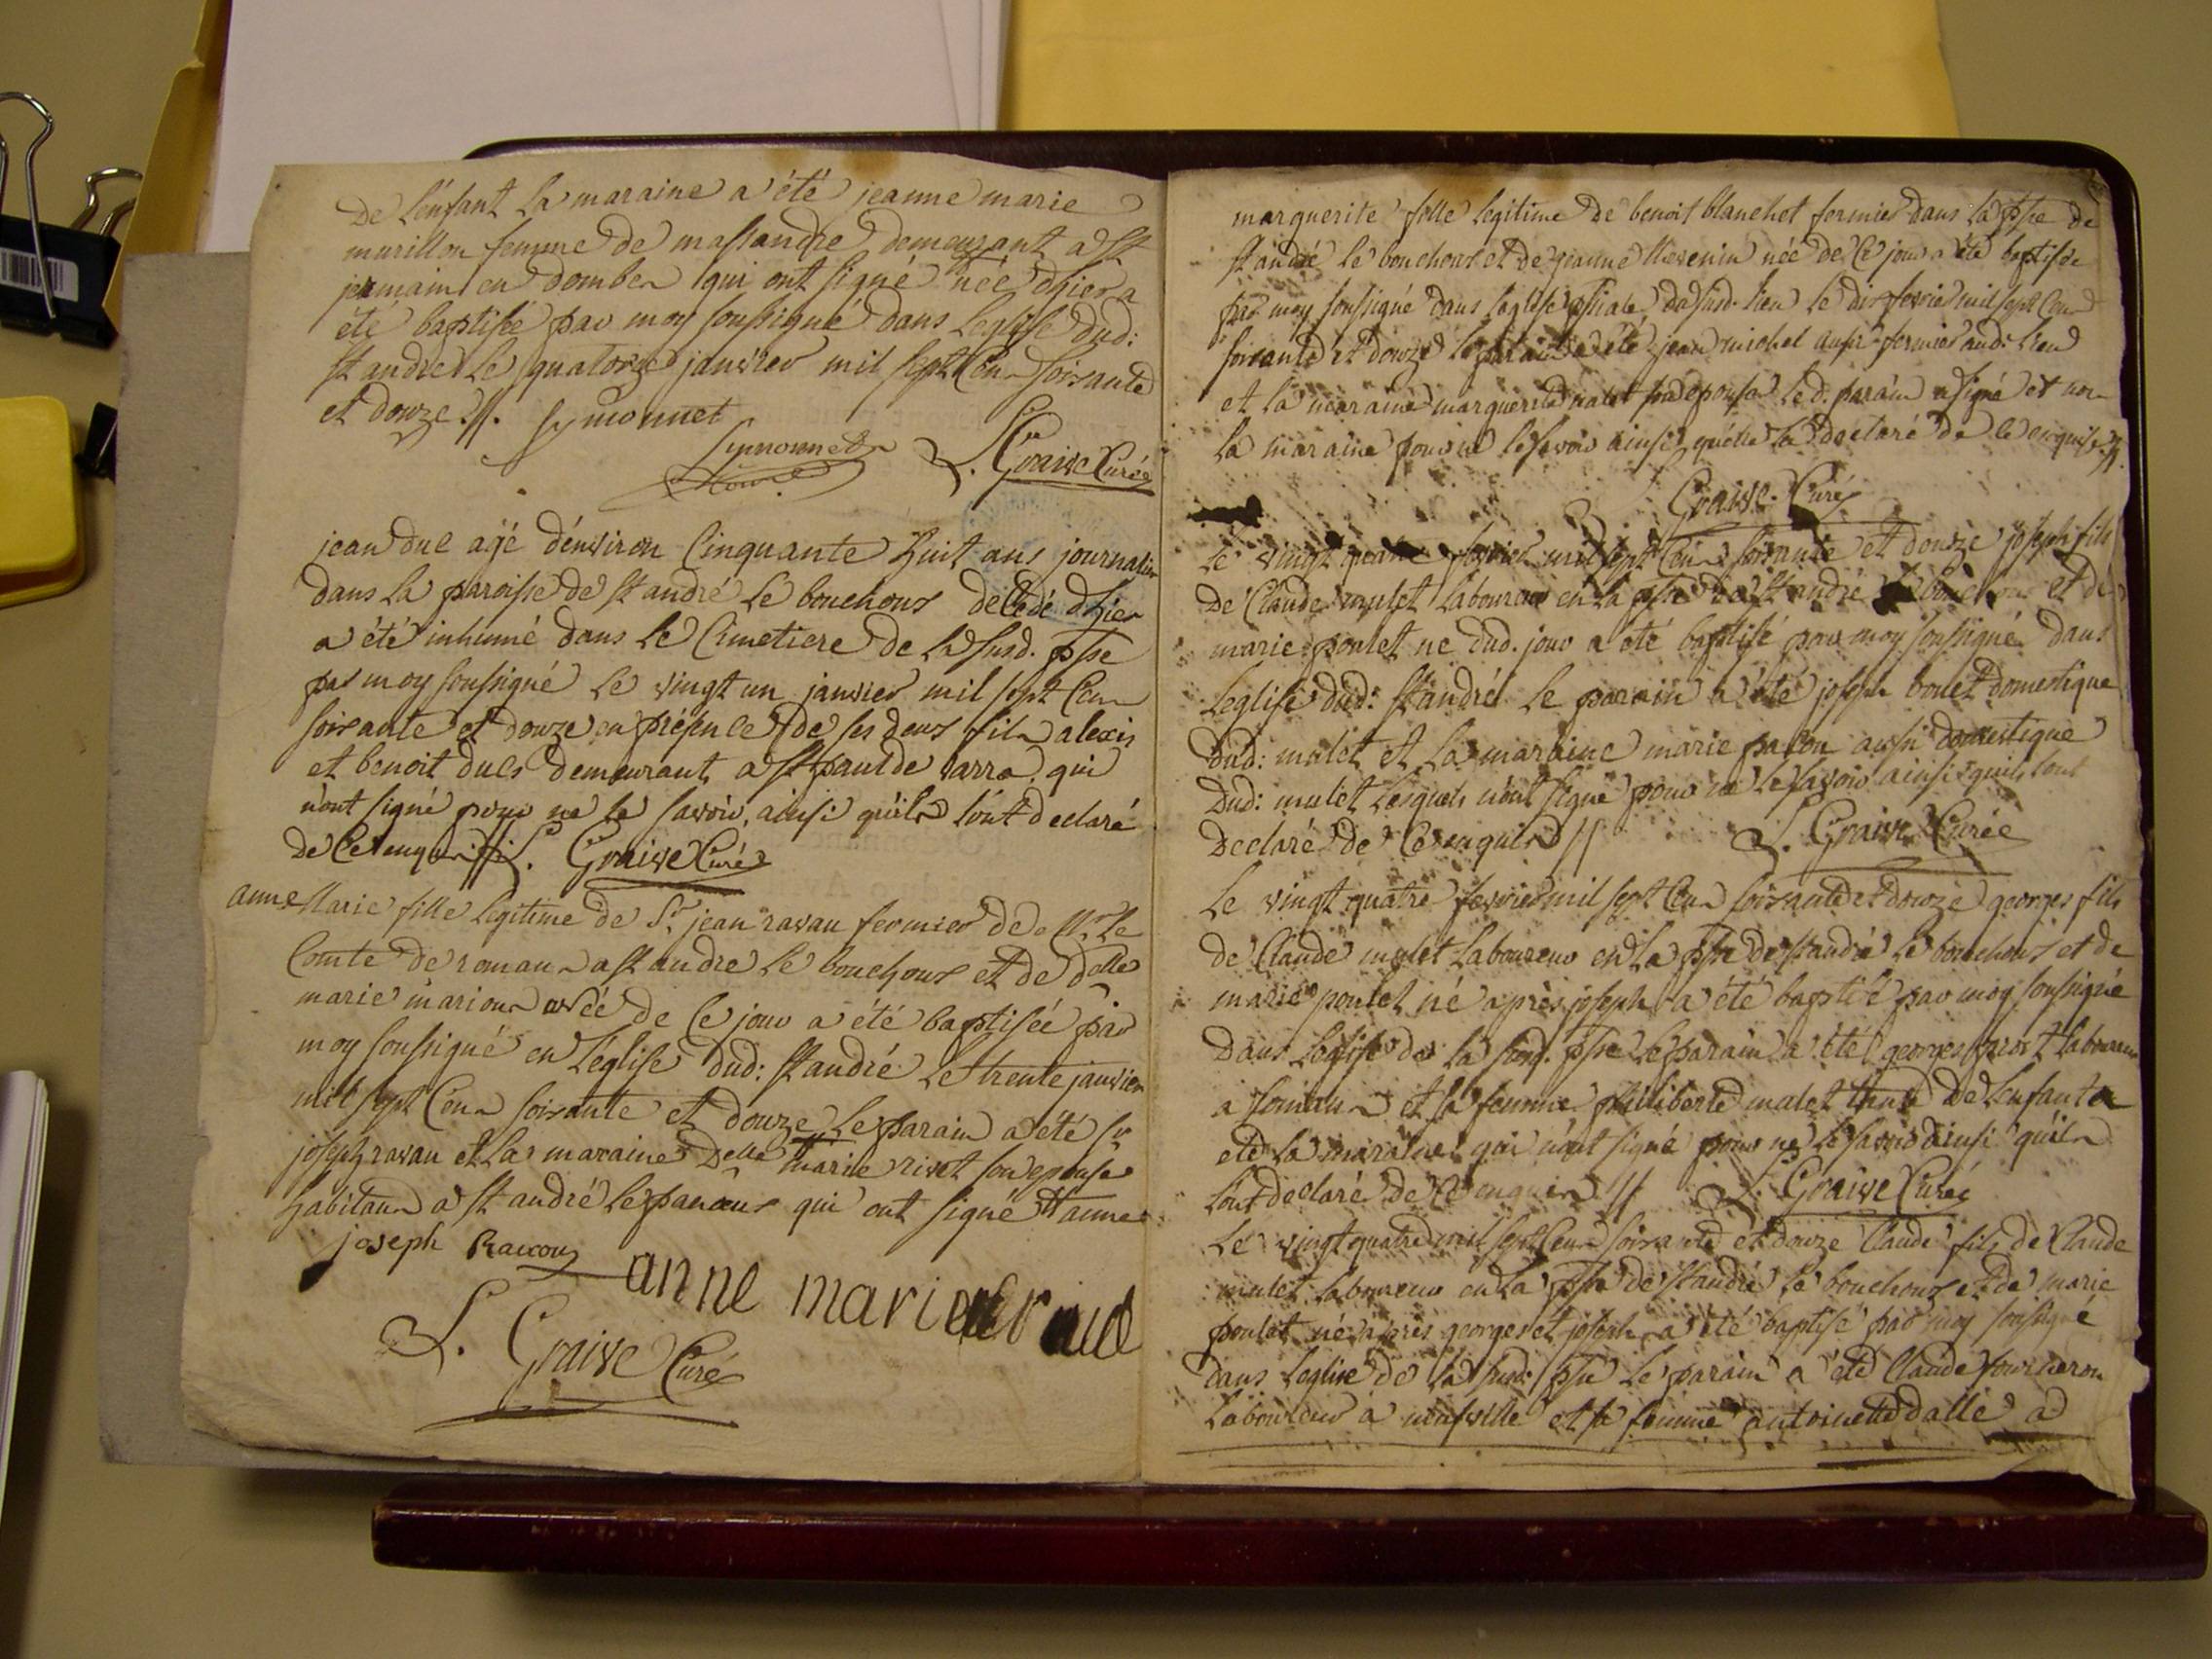 de l'enfant la maraine a été jeanne marie
murillon femme de massandre demeurant a st
jermain en dombe qui ont signé née d'hier a
été baptisée par moy soussigné dans leglise dud:
st andré le quatorze janvier mil sept cen soixante
et douze //. symonnet
symonnet L. Graive Curé
jean duc agé d'environ cinquante huit ans journalier
dans la paroisse de st andré le bouchoux décedé d'hier
a été inhumé dans le cimetiere de la susd. psse
par moy soussigné le vingt un janvier mil sept cen
soixante et douze en présence de ses deux fils alexis
et benoit ducs demeurant a st paul de varra qui
n'ont signé pour ne le savoir, ainsi qu'ils l'ont declaré
de ce enquis // L. Graive Curé
anne Marie fille legitime de Sr. jean ravau fermier de Mr. le
Comte de roman a st andré le bouchoux et de delle
marie marion née de ce jour a été baptisée par
moy soussigné en l'église dud: st andré le trente janvier
mil sept cen soixante et douze le parain a été sr
joseph ravau et la maraine delle marie rivet son epouse
habitan a st andré le panoux qui ont signé # anne
joseph Ravoux
anne marie
L. Graive Curé
marguerite fille legitime de benoit blanchet fermier dans la psse de
st andré le bouchoux et de jeanne thevenin née de ce jour a été baptisée
par moy soussigné dans leglise psiale du susd. lieu le dix fevrier mil sept cen
soixante et douze le parain a été jean michel aussi fermier aud: lieu
et la maraine marguerite malet epouse le d. parain a signé et non
la maraine pour ne le savoir ainsi qu'elle la declaré de ce enquise //.
Graive Curé
le vingt quatre fevrier mil sept cen soixante et douze joseph fils
de Claude mulet laboureur en la psse de st andré le bouchoux et de
marie poulet ne dud. jour a été baptisé par moy soussigné dans
leglise dud: st andré le parain a été joseph bouet domestique
dud: mulet et la maraine marie palon aussi domestique
dud: mulet lesquels n'ont signé pour ne le savoir ainsi qu'ils l'ont
declaré de ce enquis // L. Graive Curé
le vingt quatre fevrier mil sept cen soixante et douze georges fils
de Claude mulet laboureur en la psse de st andré le bouchoux et de
marie poulet né après joseph a été baptisé par moy soussigné
dans leglise de la susd. psse le parain a été georges laboureur
a et sa femme philiberte mulet tante de l'enfant a
eté la maraine qui n'ont signé pour ne le savoir ainsi qu'ils
l'ont declaré de ce enquis // L. Graive Curé
le vingt quatre mil sept cen soixante et douze Claude fils de Claude
mulet laboureur en la psse de st andré le bouchoux et de marie
poulet né après georges et joseph a été baptisé par moy soussigné
dans leglise de la susd: psse le parain a été Claude fourneron
laboureur a neufville et sa femme antoinette dalle a